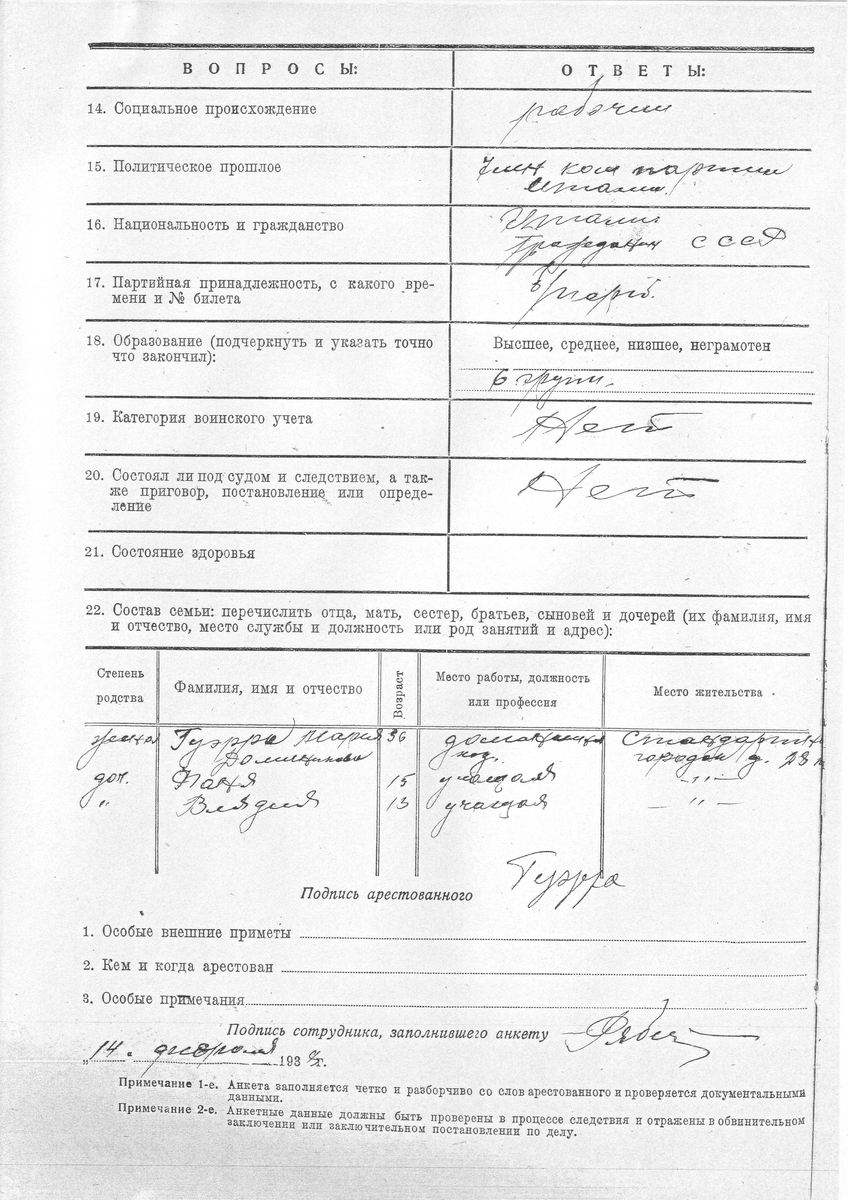 ВОПРОСЫ:
ОТВЕТЫ:
14. Социальное происхождение
рабочий
15. Политическое прошлое
Член ком партии
Италии
16. Национальность и гражданство
Гражданин СССР
17. Партийная принадлежность, с какого вре-
мени и № билета
б/парт.
18. Образование (подчеркнуть и указать точно
что закончил):
Высшее, среднее, низшее, неграмотен
6 групп.
19. Категория воинского учета
Нет
20. Состоял ли под судом и следствием, а так-
же приговор, постановление или опреде-
ление
Нет
21. Состояние здоровья
22. Состав семьи: перечислить отца, мать, сестер, братьев, сыновей и дочерей (их фамилия, имя
и отчество, место службы и должность или род занятий и адрес):
Степень
родства
Фамилия, имя и отчество
Возраст
Место работы, должность
или профессия
Место жительства
жена Гуэрра Мария 36
городок д. 28
доч. 15 учащая -"-
" 13 учащая -"-
Подпись арестованного Гуэрра
1. Особые внешние приметы
2. Кем и когда арестован
3. Особые примечания
Подпись сотрудника, заполнившего анкету
„14" февраля 193 г.
Примечание 1-е. Анкета заполняется четко и разборчиво со слов арестованного и проверяется документальными
данными.
Примечание 2-е. Анкетные данные должны быть проверены в процессе следствия и отражены в обвинительном
заключении или заключительном постановлении по делу.